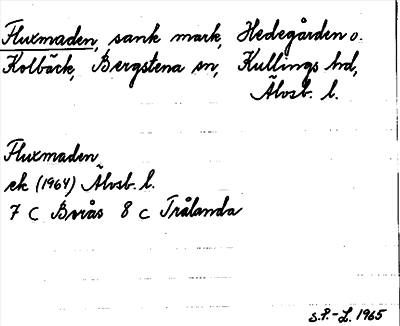 Fluxmaden, sank mark, Hedegården o.
Kolbäck, Bergstena sn, Kullings hd,
Älvsb. l.
Fluxmaden
ek (1964) Älvsb. l.
7 C Borås 8 c Trålanda
S.P.-L. 1965